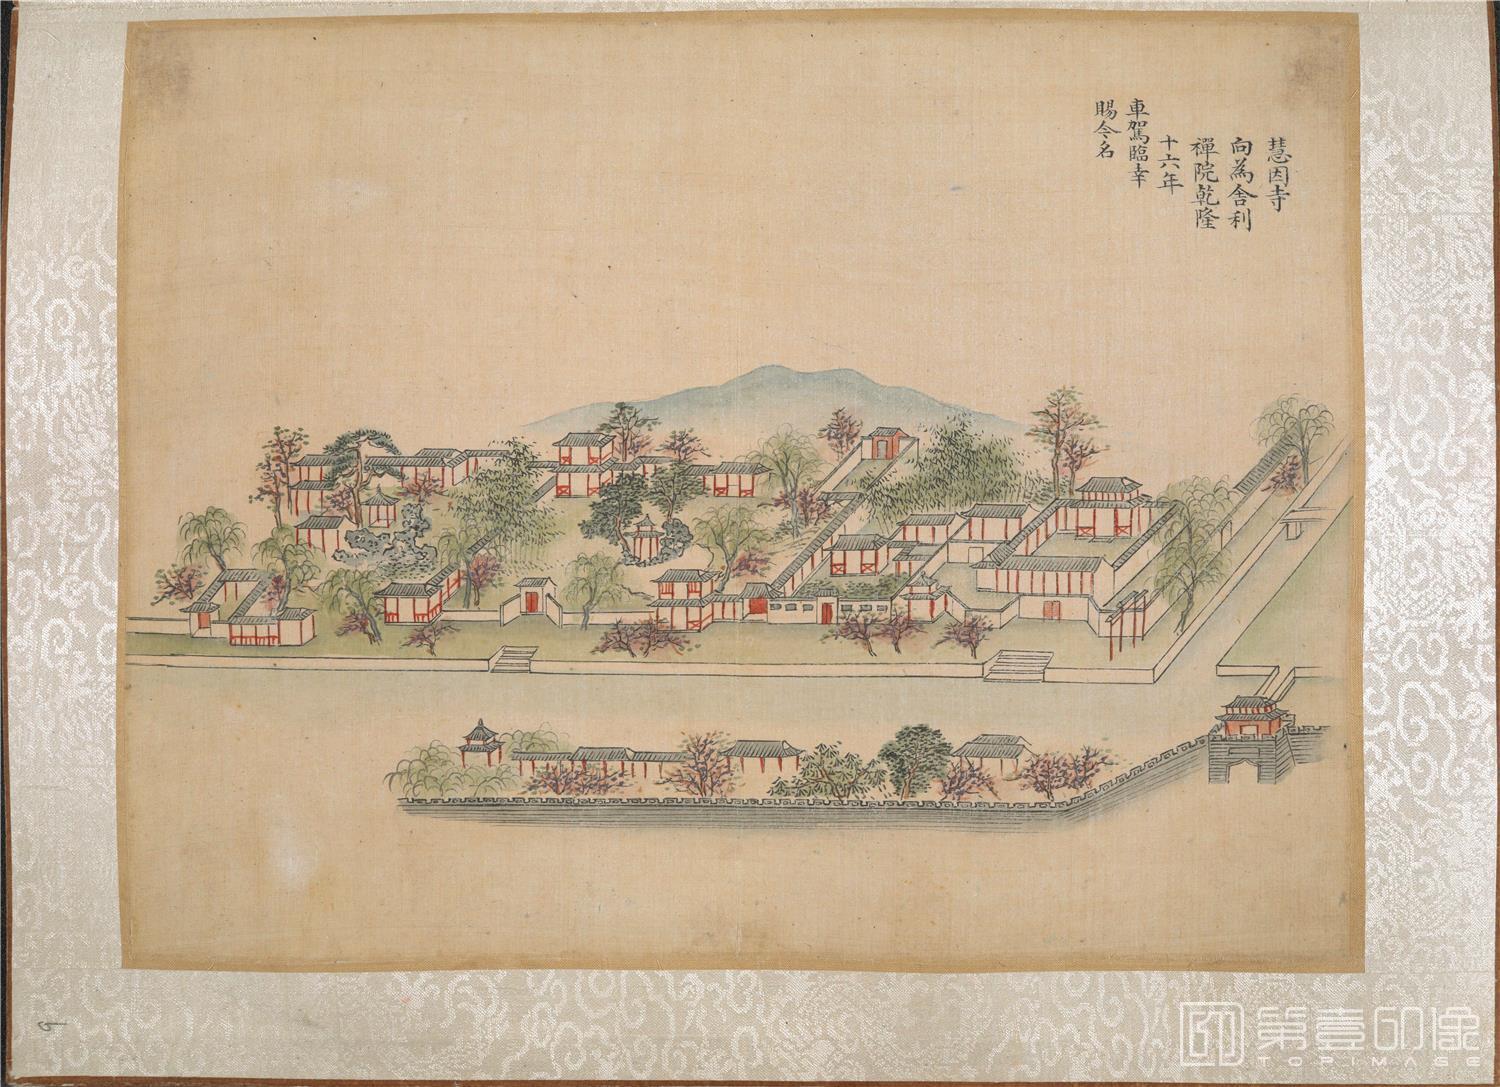 慧因寺
向為舎利
禪院乾隆
十六年
車駕臨幸
賜今名
5
第壹印像
TOPIMAGE